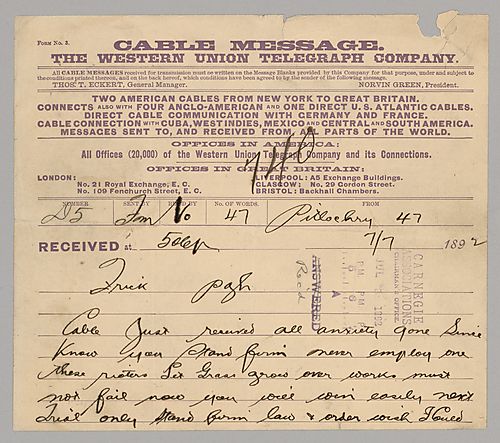 FORM No. 3.
CABLE MESSAGE.
THE WESTERN UNION TELEGRAPH COMPANY.
All CABLE MESSAGES received for transmission must be written on the Message Blanks provided by this Company for that purpose, under and subject to
the conditions printed thereon, and on the back hereof, which conditions have been agreed to by the sender of the following message.
THOS. T. ECKERT, General Manager. NORVIN GREEN, President.
TWO AMERICAN CABLES FROM NEW YORK TO GREAT BRITAIN.
CONNECTS ALSO WITH FOUR ANGLO-AMERICAN AND ONE DIRECT U. S. ATLANTIC CABLES.
DIRECT CABLE COMMUNICATION WITH GERMANY AND FRANCE.
CABLE CONNECTION WITH CUBA, WEST INDIES, MEXICO AND CENTRAL AND SOUTH AMERICA.
MESSAGES SENT TO, AND RECEIVED FROM, ALL PARTS OF THE WORLD.
OFFICES IN AMERICA:
All Offices (20,000) of the Western Union Telegraph Company and its Connections.
740
OFFICES IN GREAT BRITAIN:
LONDON:
No. 21 Royal Exchange, E. C.
No. 109 Fenchurch Street, E. C.
LIVERPOOL: A5 Exchange Buildings.
GLASGOW: No. 29 Gordon Street.
BRISTOL: Backhall Chambers.
NUMBER SENT BY REC'D BY No. OF WORDS. FROM
47 Pitlochry 47
RECEIVED at 7/7 1892
CARNEGIE
ASSOCIATIONS
CHAIRMAN'S OFFICE.
ANSWERED
Rec'd
Frick pgh
Cable just received all anxiety gone since
know you stand firm never employ one
these rioters Let grass grow over works must
not fail now you will win easily next
trial only stand firm law & order wish I could